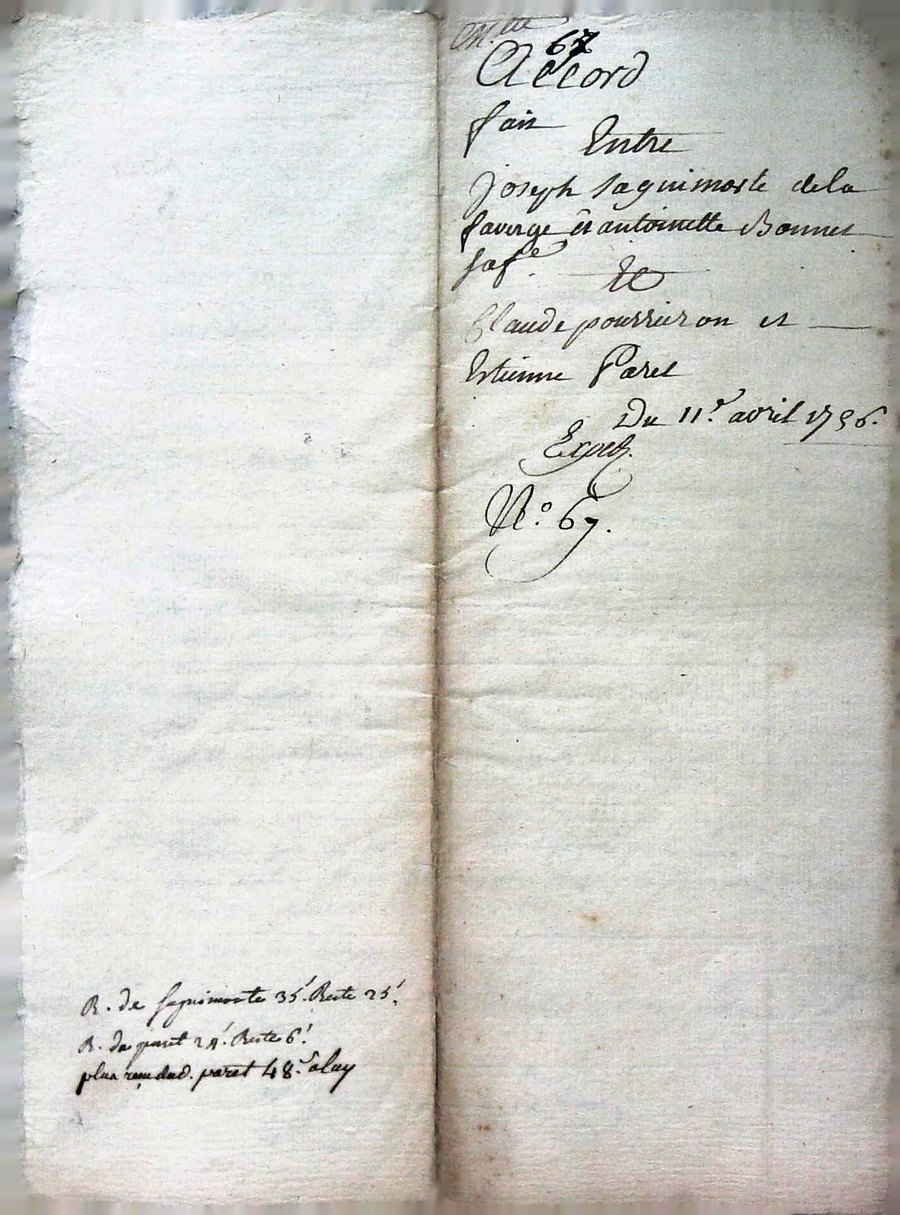 67
Accord
fait
Entre
Joseph Saguimorte dela
faverge et antoinette Bonnet
sa fe.
Et
Claude pourrieron et
Estienne Paret
Du 11e. avril 1756.
Exped.
N.o 67.
R. de Saguimorte 35s. Reste 25s.
R. de paret 24s. Reste 6s.
plus reçu dud. paret 48s.